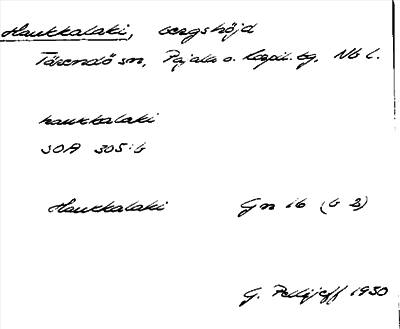 Haukkalaki, bergshöjd
Tärendö sn, Pajala o. Korpil. tg, Nb l.
haukkalaki
SOA 305:6
Haukkalaki Gn 16 (G 2)
G. Pellijeff 1930